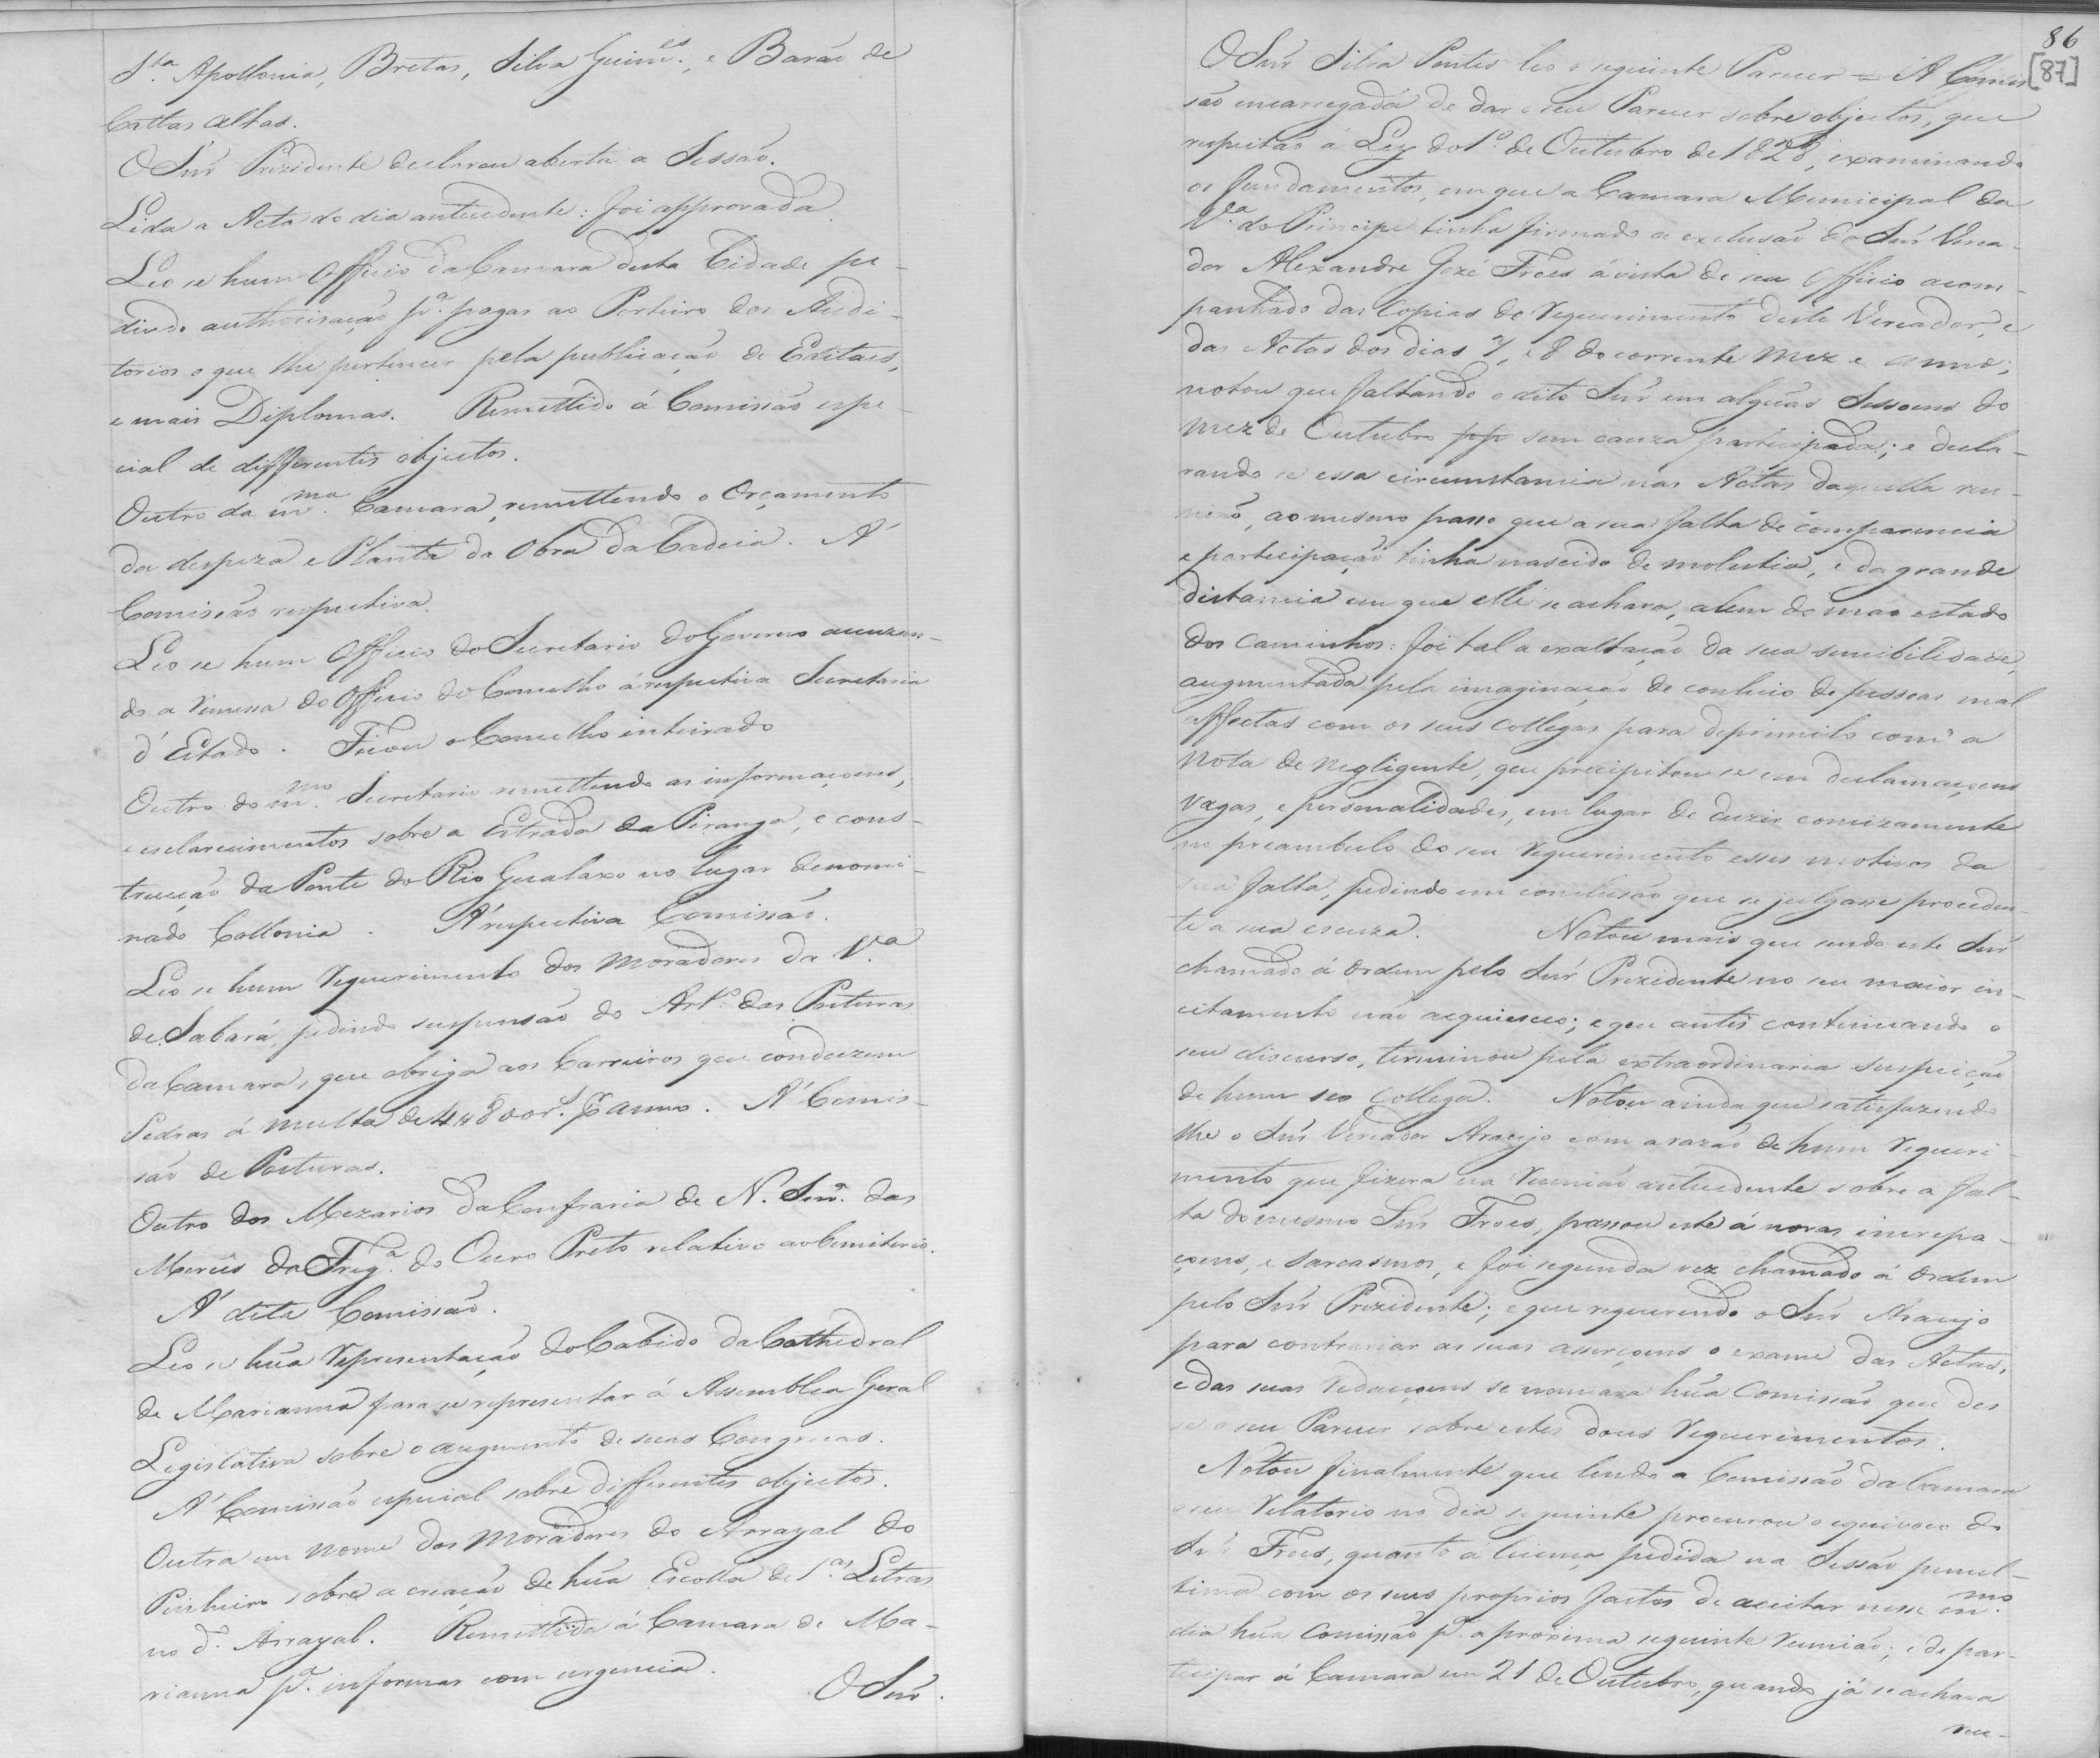 S.ta Apollonia, Bretas, Silva Guim.es, e Barão de
Cattas altas.
O Snr̃ Prezidente declarou aberta a Sessão.
Lida a Acta do dia antecedente: foi approvada.
Leo se hum Officio da Camara desta Cidade pe-
dindo authorisação p.a pagar ao Porteiro dos Audi-
torios o que lhe pertencer pela publicação de Editaes,
e mais Diplomas. Remettido á Comissão espe-
cial de differentes objectos.
Outro da m.ma Camara, remettendo o Orçamento
da despeza e Planta da Obra da Cadeia. Á
Comissão respectiva.
Leo se hum Officio do Secretario do Governo accuzan-
do a remessa do Officio do Conselho á respectiva Secretaria
d'Estado. Ficou o Conselho inteirado
Outro do m.mo Secretario remettendo as informaçoens,
e esclarecimentos sobre a Estrada da Piranga, e cons-
trucção da Ponte do Rio Gualaxo no lugar denomi-
nado Collonia. Á respectiva Comissão.
Leo se hum requerimento dos moradores da V.a
de Sabará, pedindo suspensão do Art.o das Posturas
da Camara, que obriga aos Carreiros que conduzem
Pedras á multa de 4$800 r.s p anno. Á Comis-
são de Posturas.
Outro dos Mezarios da Confraria de N. Snr.a das
Mercês da Freg.a do Ouro Preto relativo ao Cemiterio.
Á dita Comissão.
Leo se hũa representação do Cabido da Cathedral
de Marianna para se representar á Assemblea Geral
Legislativa sobre o augmento de suas Congruas.
Á Comissão especial sobre differentes objectos.
Outra em nome dos moradores do Arrayal do
Pinheiro sobre a creação de hũa Escolla de 1.as Letras
no d.o Arrayal. Remettida á Camara de Ma-
rianna p.a informar com urgencia.
O Snr̃.
86
[87]
O Snr̃ Silva Pontes leo o seguinte Parecer = A Comis
são encarregada de dar o seu Parecer sobre objectos, que
respeitão á Ley do 1.o de Outubro de 1828, examinando
os fundamentos, em que a Camara Municipal da
V.a do Principe tinha firmado a exclusão do Snr̃ Verea-
dor Alexandre Jozé Froes á vista de seu Officio acom-
panhado das Copias do requerimento deste Vereador, e
das Actas dos dias 7, e 8 do corrente mez e anno;
notou que faltando o dito Snr̃ em algũas Sessoens do
mez de Outubro pp sem cauza participada; e decla-
rando se essa circumstancia nas Actas daquella reu-
nião, ao mesmo passo que a sua falta de comparencia
e participação tinha nascido de molestia, e da grande
distancia em que elle se achava, alem do mao estado
dos caminhos: foi tal a exaltação da sua sencibilidade,
augmentada pela imaginação de conluio de pessoas mal
affectas com os seus collegas para deprimilo com a
nota de negligente, que precipitou se em declamaçoens
vagas, e personalidades, em lugar de duzir concizamente
no preambulo do seu requerimento esses motivos da
sua falta, pedindo em conclusão que se julgasse proceden-
te a sua escuza. Notou mais que sendo este Snr̃
chamado á ordem pelo Snr̃ Prezidente no seu maior in-
citamento não acquiesceo; e que antes continuando o
seu discurso, terminou pela extraordinaria suspeição
de hum seo Collega. Notou ainda que satisfazendo
lhe o Snr̃ Vereador Araujo com a razão de hum requeri-
mento que fizera na reunião antecedente sobre a fal-
ta do mesmo Snr̃ Froes, passou este á novas increpa-
çoens, e sarcasmos, e foi segunda vez chamado á ordem
pelo Snr̃ Prezidente; e que requerendo o Snr̃ Araujo
para contrariar as suas asserçoens o exame das Actas,
e das suas redaçoens se nomeara hũa Comissão que des
se o seu Parecer sobre estes dous requerimentos.
Notou finalmente que lendo a Comissão da Camara
o seu relatorio no dia seguinte procurou o equivoco do
Snr̃ Froes, quanto á licença pedida na Sessão penul-
tima com os seus proprios factos de aceitar nesse m.mo
dia hũa Comissão p.a a proxima seguinte reunião; e de par-
ticipar á Camara em 21 de Outubro, quando já se achava
reu-